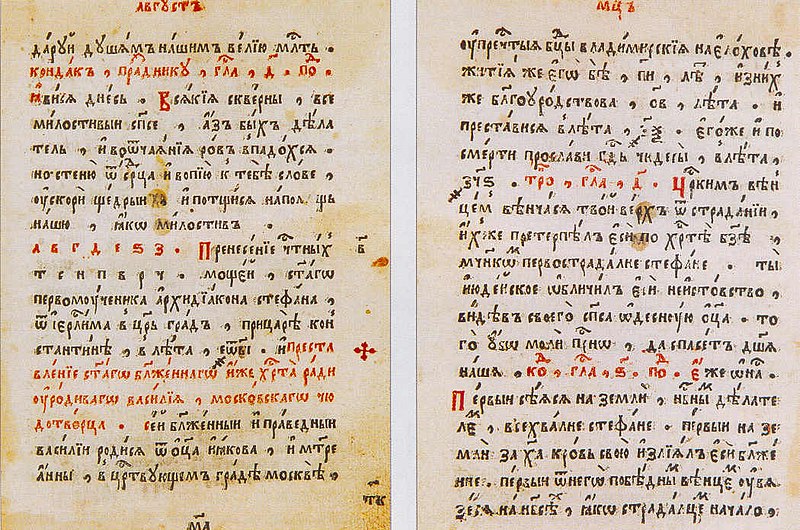 АВГУСТЪ
даруй душамъ нашимъ велїю млть .
кондакъ , праднику , гла , д . по .
ꙗвися днесь . Всякїя скверны , все
милостивыи спсе , азъ быхъ дѣла
тель , и ѿчаянїя ровъ впадохся .
но стеню ѿ срца и вопїю к тебѣ слове ,
ускори щедрыи и потщися на
нашю , ꙗкѡ милостивъ .
а в г д е ѕ з . Пренесенїе чтныхъ
мощеи , стагѡ
первомоученика архидїакона стефана ,
ѿ іерлима в црь градъ , при царѣ кон
стантинѣ , в лѣта , . и преста
вленїе стагѡ блженнагѡ иже хрта ради
уродивагѡ василїя , московскагѡ чю
дотворца . сеи блженныи и праведныи
василїи родися ѿ оца иꙗкова , и мтре
анны , в цртвующемъ градѣ москвѣ ,
мца
мцъ
у пречтыя бцы владимирскїя на елоховѣ .
житїя же егѡ бѣ , пи , лѣ , из них
же блгоуродствова , ов , лѣта . и
преставися в лѣта , . егоже и по
смерти прослави гдь чюдесы , в лѣта ,
зчѕ . тро , гла , д . Цркимъ вѣн
цемъ вѣнчася твой верхъ ѿ страданїи ,
ихже претерпѣлъ еси по хртѣ бзѣ ,
мчнкѡм первострадалне стефане . ты
июдейское ѡбличилъ еси неистовство ,
видѣвъ своего спса ѡдесную оца . то
го убѡ моли прнѡ , да спасетъ дша
нашя , ко , гла , ѕ . по . еже ѡ на .
Первыи сѣяся на земли , нбныи дѣлате
ле , всехвалне стефане . первыи на зе
мли за ха кровь свою излїялъ еси блже
нне . первыи ѿ негѡ побѣдны вѣнцемъ увя
зеся на нбсѣ , ꙗкѡ страдалцемъ начало ,